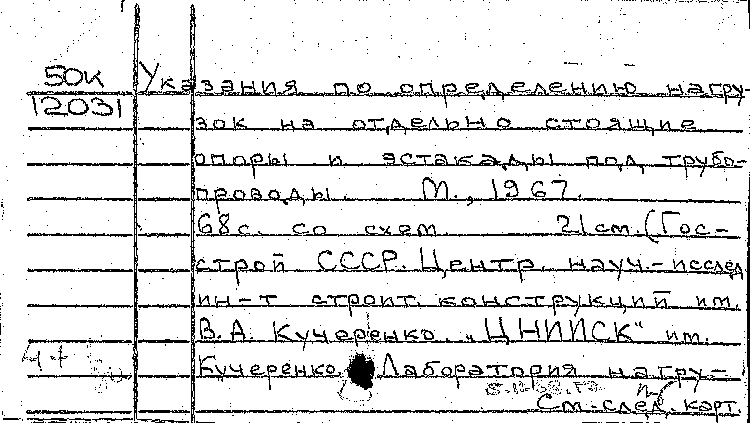 50К Указания по определению нагру-
12031 зок на отдельно стоящие
опоры и эстакады под трубо-
проводы. М., 1967.
68с. со схем. 21см. (Гос-
строй СССР. Центр. науч.-исслед
ин-т строит. конструкций им.
В.А. Кучеренко „ЦНИИСК" им.
Кучеренко. Лаборатория нагру-
См. след. карт.